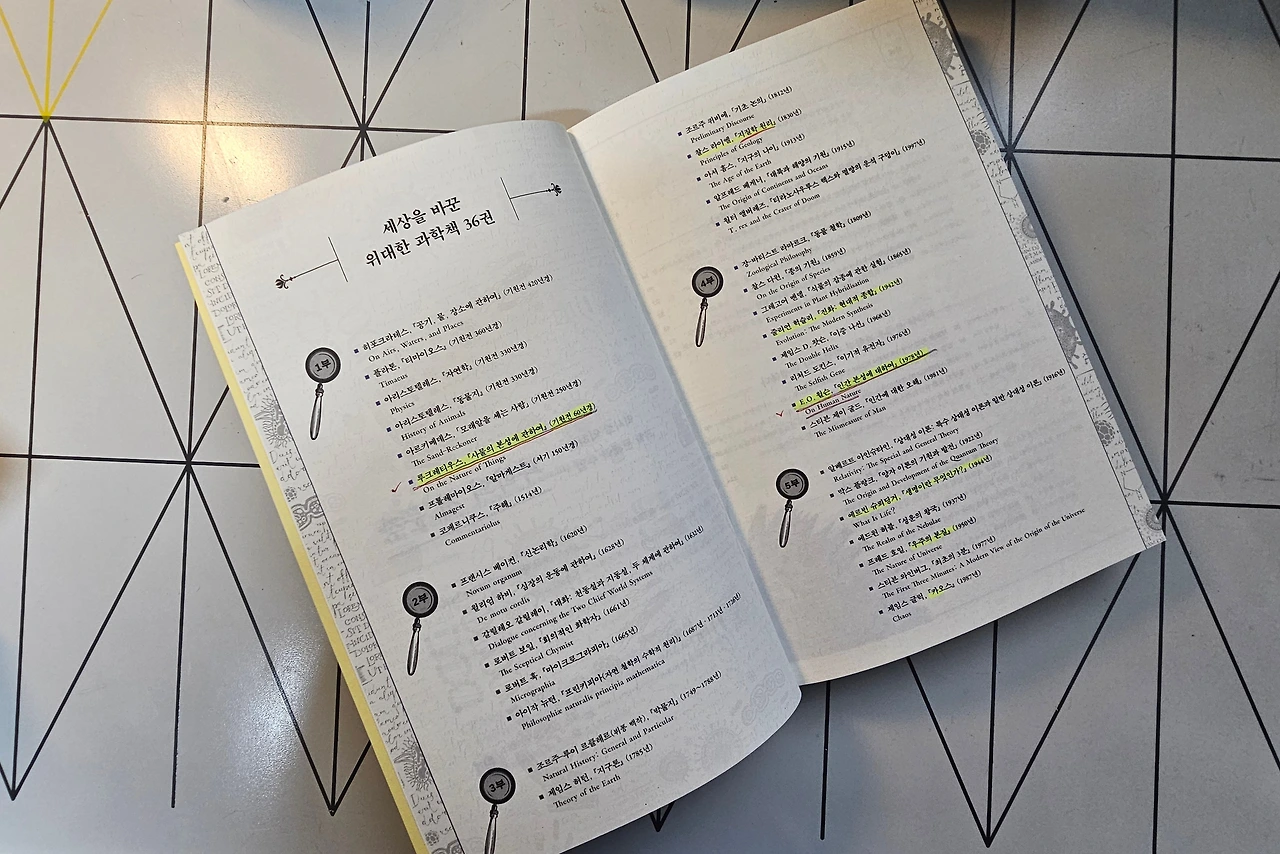 세상을 바꾼
위대한 과학책 36권
1부
히포크라테스, 「공기, 물, 장소에 관하여」 (기원전 420년경)
On Airs, Waters, and Places
플라톤, 「티마이오스」 (기원전 360년경)
Timaeus
아리스토텔레스, 「자연학」 (기원전 330년경)
Physics
아리스토텔레스, 「동물지」 (기원전 330년경)
History of Animals
아르키메데스, 「모래알을 세는 사람」 (기원전 250년경)
The Sand-Reckoner
루크레티우스, 「사물의 본성에 관하여」 (기원전 60년경)
On the Nature of Things
프톨레마이오스, 「알마게스트」 (서기 150년경)
Almagest
코페르니쿠스, 「주해」 (1514년)
Commentariolus
2부
프랜시스 베이컨, 「신논리학」 (1620년)
Novum organum
윌리엄 하비, 「심장의 운동에 관하여」 (1628년)
De motu cordis
갈릴레오 갈릴레이, 「대화: 천동설과 지동설, 두 세계에 관하여」 (1632년)
Dialogue concerning the Two Chief World Systems
로버트 보일, 「회의적인 화학자」 (1661년)
The Sceptical Chymist
로버트 훅, 「마이크로그라피아」 (1665년)
Micrographia
아이작 뉴턴, 「프린키피아(자연 철학의 수학적 원리)」 (1687년·1713년·1726년)
Philosophiæ naturalis principia mathematica
3부
조르주-루이 르클레르(뷔퐁 백작), 「박물지」 (1749~1788년)
Natural History: General and Particular
제임스 허턴, 「지구론」 (1785년)
Theory of the Earth
조르주 퀴비에, 「기초 논의」 (1812년)
Preliminary Discourse
찰스 라이엘, 「지질학 원리」 (1830년)
Principles of Geology
아서 홈스, 「지구의 나이」 (1913년)
The Age of the Earth
알프레드 베게너, 「대륙과 해양의 기원」 (1915년)
The Origin of Continents and Oceans
월터 앨버레즈, 「티라노사우루스 렉스와 멸망의 운석 구덩이」 (1997년)
T. rex and the Crater of Doom
4부
장-바티스트 라마르크, 「동물 철학」 (1809년)
Zoological Philosophy
찰스 다윈, 「종의 기원」 (1859년)
On the Origin of Species
그레고어 멘델, 「식물의 잡종에 관한 실험」 (1865년)
Experiments in Plant Hybridisation
줄리언 헉슬리, 「진화: 현대적 종합」 (1942년)
Evolution: The Modern Synthesis
제임스 D. 왓슨, 「이중 나선」 (1968년)
The Double Helix
리처드 도킨스, 「이기적 유전자」 (1976년)
The Selfish Gene
E.O. 윌슨, 「인간 본성에 대하여」 (1978년)
On Human Nature
스티븐 제이 굴드, 「인간에 대한 오해」 (1981년)
The Mismeasure of Man
5부
알베르트 아인슈타인, 「상대성 이론: 특수 상대성 이론과 일반 상대성 이론」 (1916년)
Relativity: The Special and General Theory
막스 플랑크, 「양자 이론의 기원과 발전」 (1922년)
The Origin and Development of the Quantum Theory
에르빈 슈뢰딩거, 「생명이란 무엇인가?」 (1944년)
What Is Life?
에드윈 허블, 「성운의 왕국」 (1937년)
The Realm of the Nebulae
프레드 호일, 「우주의 본질」 (1950년)
The Nature of Universe
스티븐 와인버그, 「최초의 3분」 (1977년)
The First Three Minutes: A Modern View of the Origin of the Universe
제임스 글릭, 「카오스」 (1987년)
Chaos